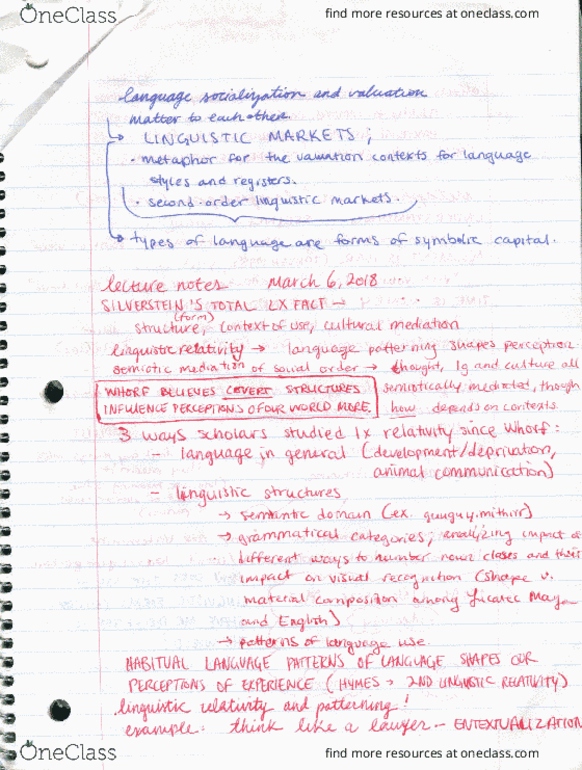 OneClass
find more resources at oneclass.com
language socialization and valuation
matter to each other.
↳ LINGUISTIC MARKETS;
• metaphor for the valuation contexts for language
styles and registers.
• second-order linguistic markets.
↳ types of language are forms of symbolic capital.
lecture notes March 6, 2018
SILVERSTEIN'S TOTAL LX FACT →
(form)
structure, context of use, cultural mediation
linguistic relativity → language patterning shapes perception
semiotic mediation of social order → thought, lg and culture all
WHORF BELIEVES COVERT STRUCTURES semiotically mediated, though
INFLUENCE PERCEPTIONS OF OUR WORLD MORE. how depends on contexts
3 ways scholars studied lx relativity since Whorf:
- language in general (development/deprivation,
animal communication)
- linguistic structures
→ semantic domain (ex. guugu yimithirr)
→ grammatical categories; analyzing impact of
different ways to number noun classes and their
impact on visual recognition (shape v.
material composition among Yucatec Maya
and English)
→ patterns of language use.
HABITUAL LANGUAGE PATTERNS OF LANGUAGE SHAPES OUR
PERCEPTIONS OF EXPERIENCE (HYMES → 2ND LINGUISTIC RELATIVITY)
linguistic relativity and patterning!
example: think like a lawyer - ENTEXTUALIZATION
OneClass
find more resources at oneclass.com